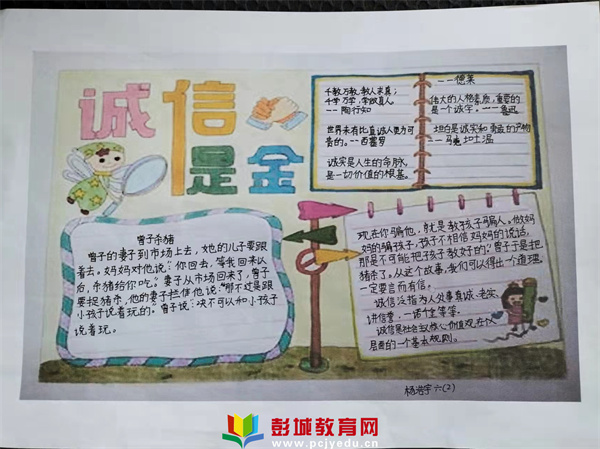 诚信
是金
千教万教,教人求真;
千学万学,学做真人。
-- 陶行知
世界未有比真诚人更为可
贵的。--西塞罗
诚实是人生的命脉,
是一切价值的根基。
--德莱
伟大的人格素质,重要的
是一个诚字。--鲁迅
坦白是诚实和勇敢的产物
--马克·吐温
曾子杀猪
曾子的妻子到市场上去,她的儿子要跟
着去。妈妈对他说:"你回去,等我回来以
后,杀猪给你吃。"妻子从市场回来了,曾子
要捉猪杀,他的妻子拦住他说:"那不过是跟
小孩子说着玩的。"曾子说:决不可以和小孩子
说着玩。
现在你骗他,就是教孩子骗人。做妈
妈的骗孩子,孩子不相信妈妈的说话,
那是不可能把孩子教好的。"曾子于是把
猪杀了。从这个故事,我们可以得出一个道理,
一定要言而有信。
诚信泛指为人处事真诚、老实、
讲信誉,一诺千金等等。
诚信是社会主义核心价值观在个人
层面的一个基本规则。
杨浩宇 六(2)
彭城教育网
www.pcjyedu.cn